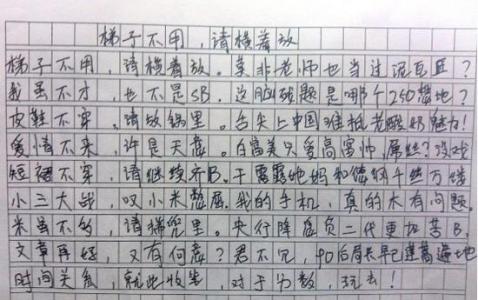 梯子不用,请横着放
梯子不用,请横着放。莫非老师也当过泥瓦匠?
我虽不才,也不是SB,这脑残题是哪个250蛋地?
皮鞋不穿,请放锅里。舌尖上中国难抵老酸奶魅力!
爱情不来,许是天意。白富美只爱高富帅,屌丝?没戏
短裙不穿,请继续齐B。干露露她妈和你有千丝万缕
小三大战,叹小米憋屈,我的手机,真的木有问题。
米虽不多,请揣兜里。央行降息负二代更加苦B。
文章再好,又有何意?君不见,90后局长早已蓬蒿遍地
时间关系,就此收笔,对于分数,玩去!